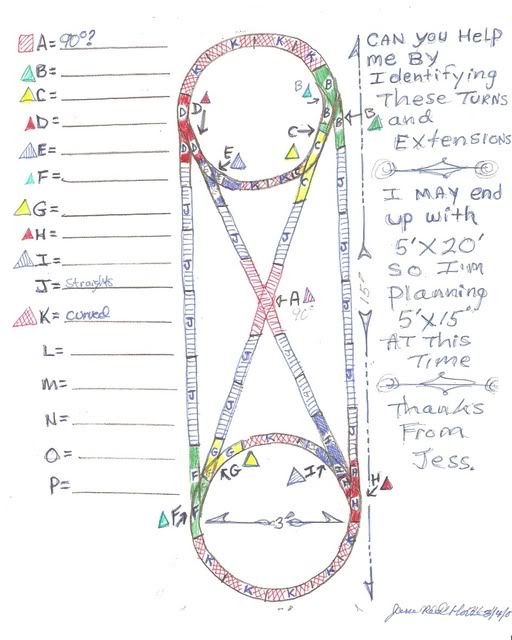 A= 90°?
B=
C=
D=
E=
F=
G=
H=
I=
J= Straights
K= curved
L=
M=
N=
O=
P=
CAN you Help
me By
Identifying
These TURNS
and
Extensions
I MAy end
up with
5'X20'
So I'm
planning
5'X15"
AT This
Time
Thanks
From
Jess.
K
K
K
B
B
B
B
B
D
D
D
D
C
C
C
E
K
K
J
J
J
J
A
90°
15'
J
J
J
J
G
G
G
K
K
I
H
H
H
H
F
F
F
3'
K
K
K
K